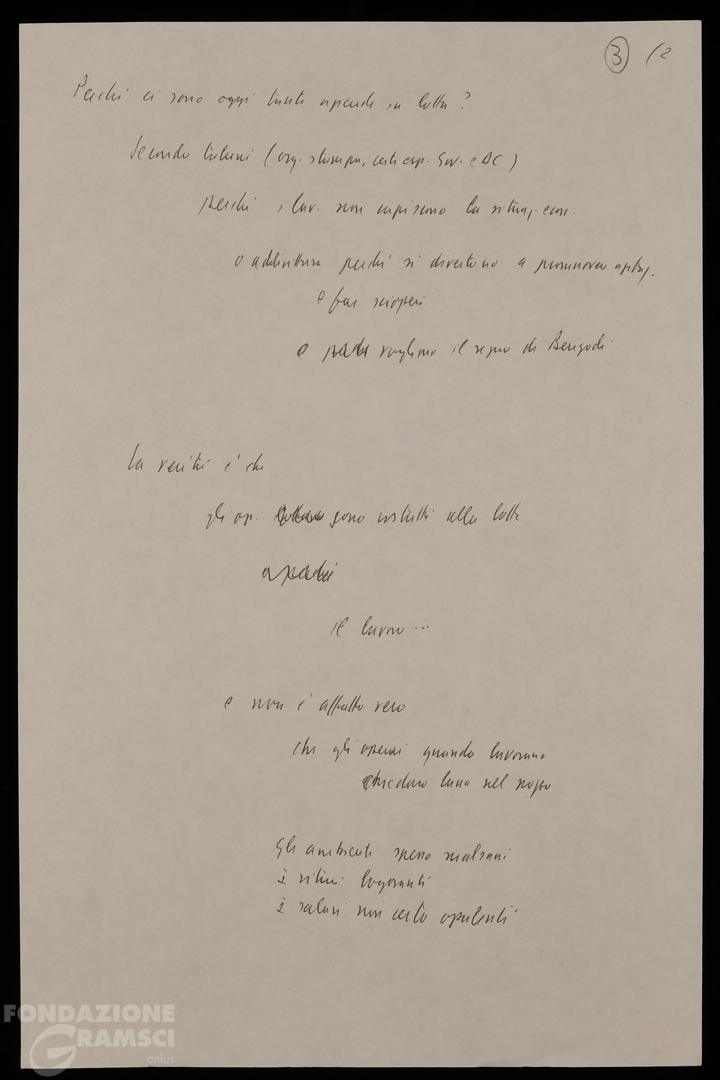 3 (2
Perché ci sono oggi tante aziende in lotta?
Secondo taluni (org. stampa, certi esp. Gov. e DC)
perché i lav. non capiscono la situaz. econ.
o addirittura perché si divertono a promuovere agitaz.
e far scioperi
e perché vogliono il regno di Bengodi
La verità è che
gli op. sono costretti alla lotta
perché
il lavoro ...
e non è affatto vero
che gli operai quando lavorano
chiedano luna nel pozzo
Gli ambienti spesso malsani
i ritmi logoranti
i salari non certo opulenti
FONDAZIONE
GRAMSCI
onlus